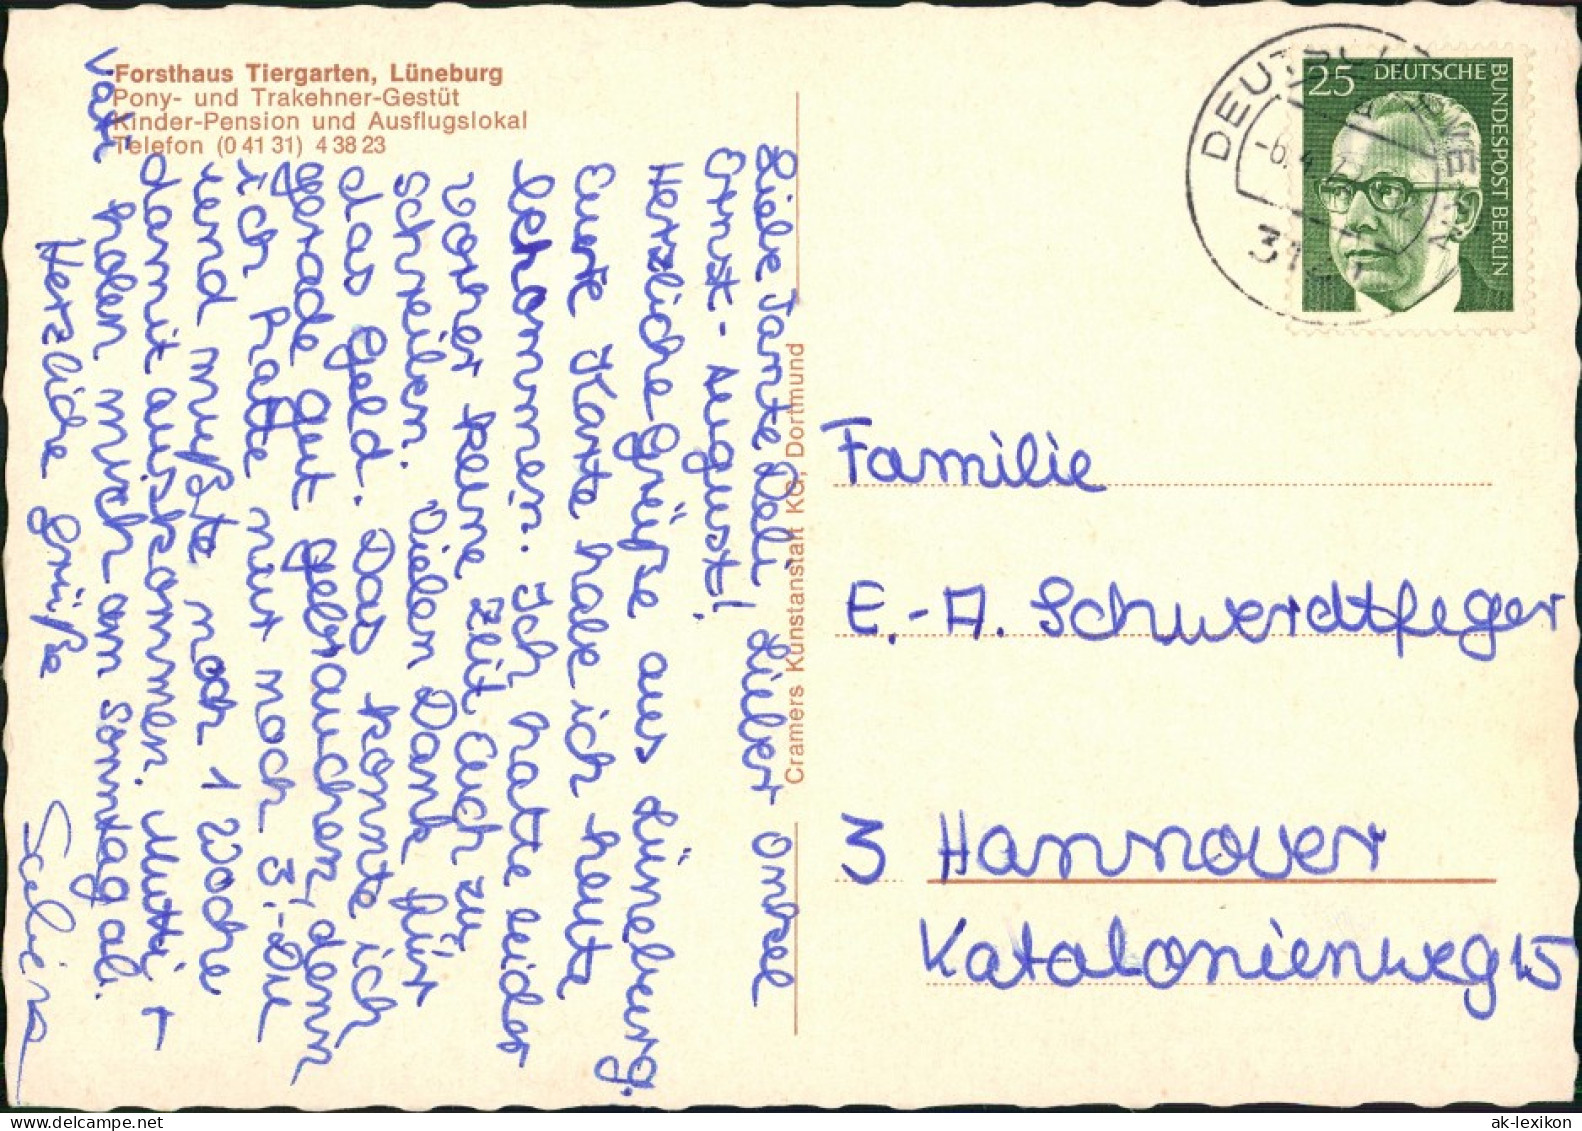 Forsthaus Tiergarten, Lüneburg
Pony- und Trakehner-Gestüt
Kinder-Pension und Ausflugslokal
Telefon (0 41 31) 4 38 23
Liebe Tante Deli! Lieber Onkel
Ernst-August!
Herzliche Grüße aus Lüneburg.
Eure Karte habe ich heute
bekommen. Ich hatte leider
vorher keine Zeit Euch zu
schreiben. Vielen Dank für
das Geld. Das konnte ich
gerade gut gebrauchen, denn
ich hatte nur noch 3,-DM
und mußte noch 1 Woche
damit auskommen. Mutti +
Vati holen mich am Sonntag ab.
Herzliche Grüße
Cramers Kunstanstalt KG, Dortmund
25 DEUTSCHE
BUNDESPOST BERLIN
Familie
E.-A. Schwerdtfeger
3 Hannover
Katalonienweg 15
ak-lexikon